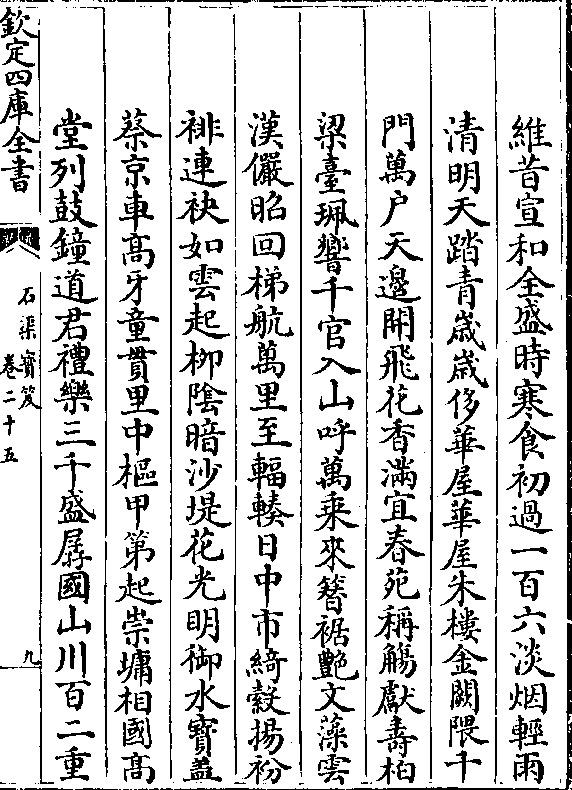 維昔宣和全盛時寒食初過一百六淡烟輕雨
清明天踏青嵗嵗侈華屋華屋朱樓金闕隈千
門萬户天邉開飛花香滿宜春苑稱觴獻壽柏
梁臺珮響千官入山呼萬乗來簪裾艶文藻雲
漢儼昭回梯航萬里至輻輳日中市綺縠揚衯
裶連袂如雲起栁隂暗沙堤花光明御水寳葢
蔡京車髙牙童貫里中樞甲第起崇墉相國髙
堂列鼓鐘道君禮樂三千盛孱國山川百二重
欽定四庫全書
石渠寳笈
卷二十五
九